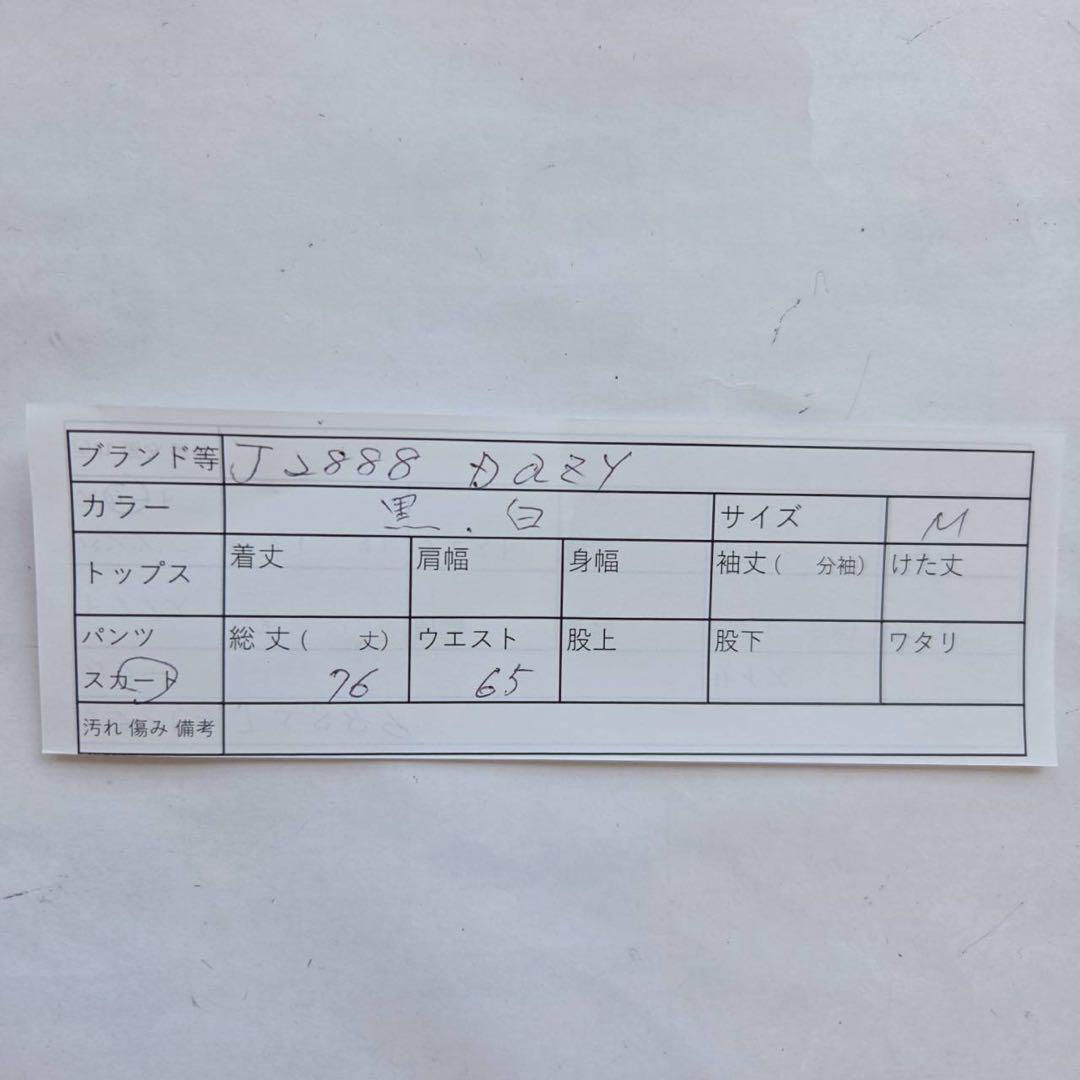 ブランド等 J2888 DAZY
カラー 黒.白 サイズ M
トップス 着丈 肩幅 身幅 袖丈( 分袖) けた丈
パンツ 総丈( 丈) ウエスト 股上 股下 ワタリ
スカート 76 65
汚れ 傷み 備考